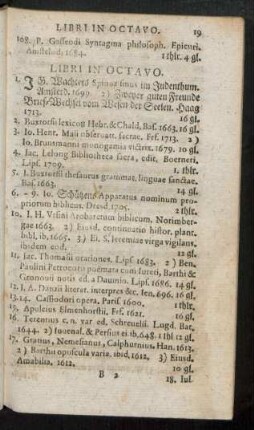 LIBRI IN OCTAVO. 19
108. P. Gassendi Syntagma philosoph. Epicuri.
Amstelod. 1684. 1 thlr. 4 gl.
LIBRI IN OCTAVO.
1. J. G. Wachters Spinozismus im Judenthum.
Amsterd. 1699. 2) Zweyer guten Freunde
Brief-Wechsel vom Wesen der Seelen. Haag
1713. 16 gl.
2. Buxtorfii lexicon Hebr. & Chald. Bas. 1663. 16 gl.
3. Io. Henr. Maii observat. sacrae. Frf. 1713. 2)
Io. Brunsmanni monogamia victrix. 1679. 10 gl.
4. Iac. Lelong bibliotheca sacra, edit. Boerneri.
Lips. 1709. 1 thlr.
5. I. Buxtorfii thesaurus grammat. linguae sanctae.
Bas. 1663.
6-9. Io. Schützens Apparatus nominum pro-
priorum biblicus. Dresd. 1705. 1 thlr.
10. I. H. Vrsini Arboretum biblicum. Norimber-
gae 1663. 2) Eiusd. continuatio histor. plant.
bibl. ib. 1665. 3) Ei. S. Ieremiae virga vigilans.
ibidem eod. 12 gl.
11. Iac. Thomasii orationes. Lips. 1683. 2) Ben.
Paulini Petrocorii poëmata com suteti, Barthi &
Gronouii notis ed. a Daumio. Lips. 1686. 14 gl.
12. I. A. Danzii literat. interpres &c. Ien. 696. 16 gl.
13-14. Cassiodori opera. Paris. 1600. 1 thlr.
15. Apuleius Elmenhorstii, Frf. 1621. 1 thlr.
16. Terentius c. n. var. ed. Schreuelii. Lugd. Bat.
1644. 2) Iuuenal. & Persius ei. ib. 648. 1 thl. 12 gl.
17. Gratius, Nemesianus, Calphurnius. Han. 1613.
2) Barthii opuscula varia. ibid. 1612. 3) Eiusd.
Amabilia. 1612. 10 gl.
B 2 18. Iul.